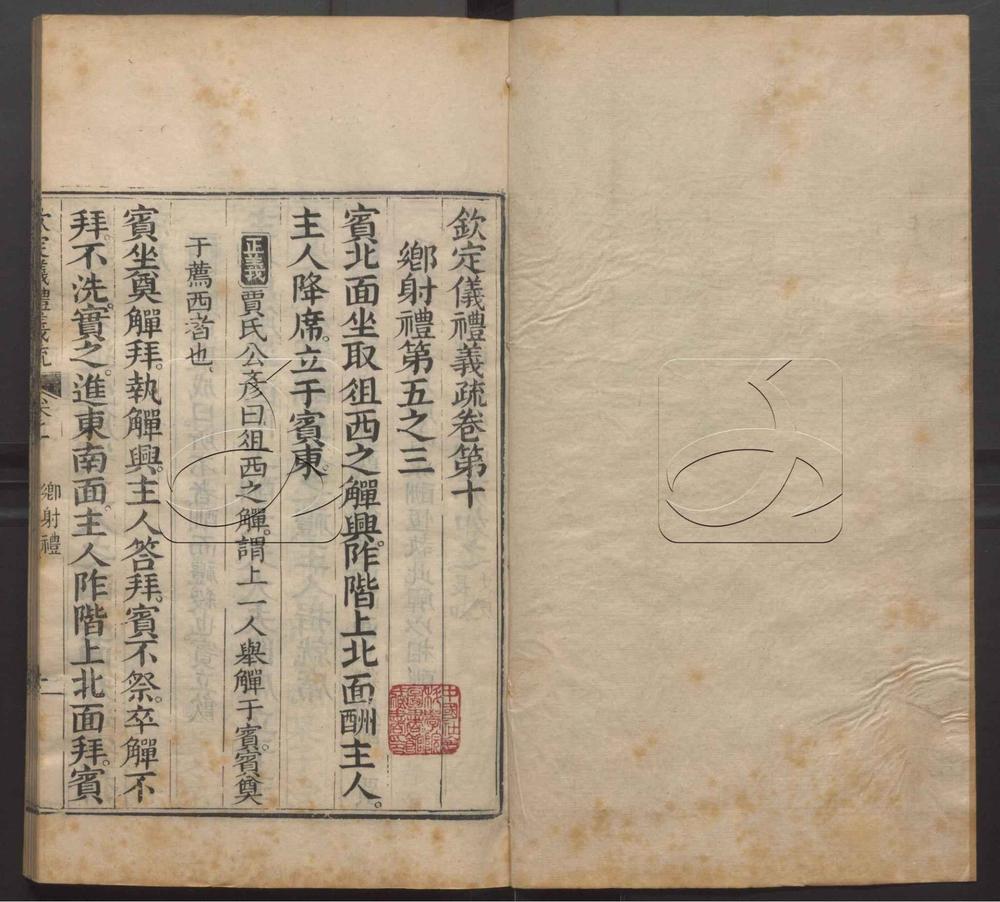 欽定儀禮義疏卷第十
鄉射禮第五之三
賓北面坐取俎西之觶興阼階上北面酬主人。
主人降席。立于賓東。
正義 賈氏公彥曰俎西之觶。謂上一人舉觶于賓。賓奠
于薦西者也。
賓坐奠觶拜。執觶興。主人答拜。賓不祭。卒觶不
拜。不洗。實之。進東南面。主人阼階上北面拜。賓
欽定儀禮義疏 卷十 鄉射禮
中國社會科學院